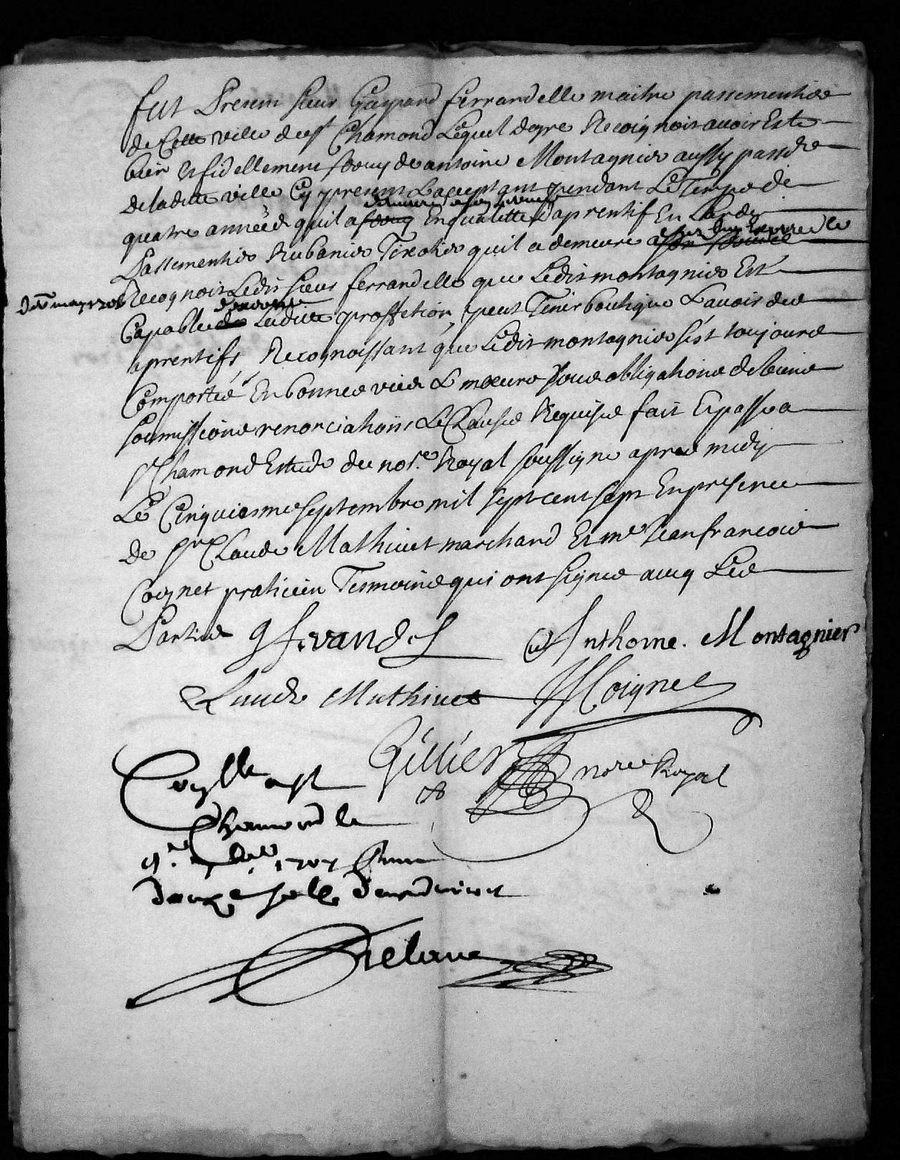 fut Present sieur Gaspard ferrandelle maitre passementier
de Cette ville de st Chamond Lequel degre Recoignois avoir Esté
bien Et fidellement servy de antoine Montagnier aussy passr
deladitte ville Cy present Lacceptant pendant Le temps de
quatre année quil a demeuré En qualitté d'aprentif En Lard
Passementier Rubanier Tixotier quil a demeuré
Recognois Ledit sieur ferrandelle que Ledit montagnier Est
Capable Laditte proffetion, peut Tenir boutique Lavoir des
aprentifs, Recognoissant que Ledit montagnier s'est toujours
Comporté En bonnes vie & mœurs sous obligations de biens
soumissions renonciations & Clauses Requises fait Et passé a
st Chamond Estude du nore Royal soussigné apres midy
Le Cinquiesme septembre mil sept cent sept En presence
de sr Claude Mathivet marchand Et me Jean francois
Coignet praticien Tesmoins qui ont signés avecq Les
Parties
g ferandel
Anthoine. Montagnier
Claude Mathivet
Coignet
Gillier nore Royal
Con.lle a st
Chamond le
1707